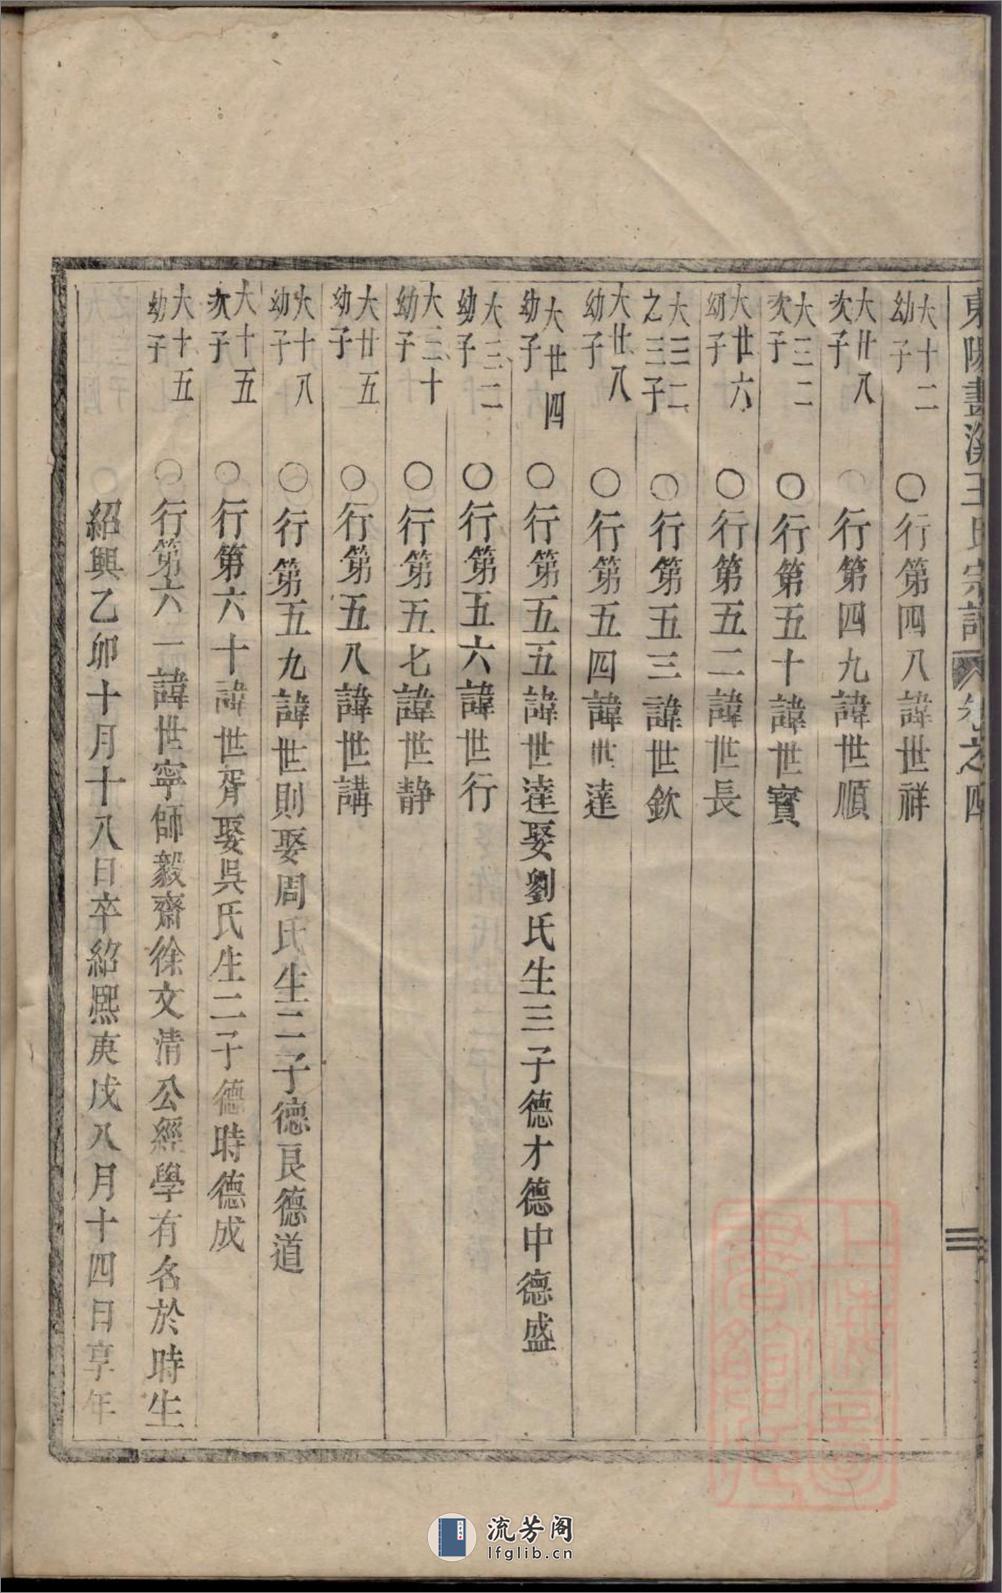 東陽畫溪王氏宗譜 卷之四
大十二幼子 ○行第四八諱世祥
大廿八次子 ○行第四九諱世順
大三二次子 ○行第五十諱世實
大廿六幼子 ○行第五二諱世長
大三二之三子 ○行第五三諱世欽
大廿八幼子 ○行第五四諱世達
大廿四幼子 ○行第五五諱世達娶劉氏生三子德才德中德盛
大三二幼子 ○行第五六諱世行
大三十幼子 ○行第五七諱世靜
大廿五幼子 ○行第五八諱世講
大十八幼子 ○行第五九諱世則娶周氏生二子德良德道
大十五次子 ○行第六十諱世胥娶吳氏生二子德時德成
大十五幼子 ○行第六一諱世寧師毅齋徐文清公經學有名於時生
紹興乙卯十月十八日卒紹熙庚戌八月十四日享年
流芳阁
lfglib.cn